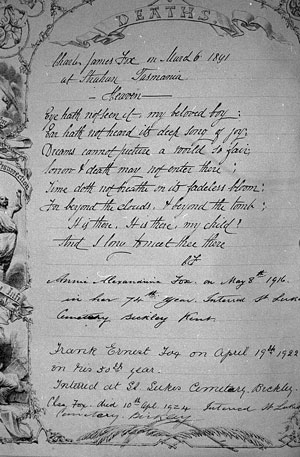 DEATHS
Charles James Fox on March 6 1891
at Strahan Tasmania
— Heaven —
Eye hath not seen it, my beloved boy;
Ear hath not heard its deep song of joy;
Dreams cannot picture a world so fair,
Sorrow & death may not enter there;
Time doth not breathe on its fadeless bloom;
For beyond the clouds, & beyond the tomb;
It is there, It is there, my child!
And I long to meet thee there
Annie Alexandrina Fox, on May 8th 1916
in her 74th year. Interred St Lukes
Cemetery Bickley Kent.
Frank Ernest Fox on April 19th 1922
on his 50th year.
Interred at St. Lukes Cemetery, Bickley.
Chas. Fox. died 10th Apl. 1924 Interred St Lukes
Cemetery. Bickley